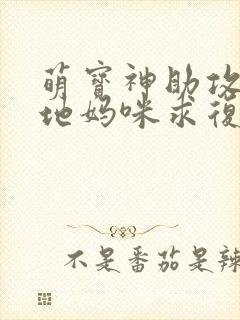 萌寶神助攻
地媽咪求復
不是番茄是辣